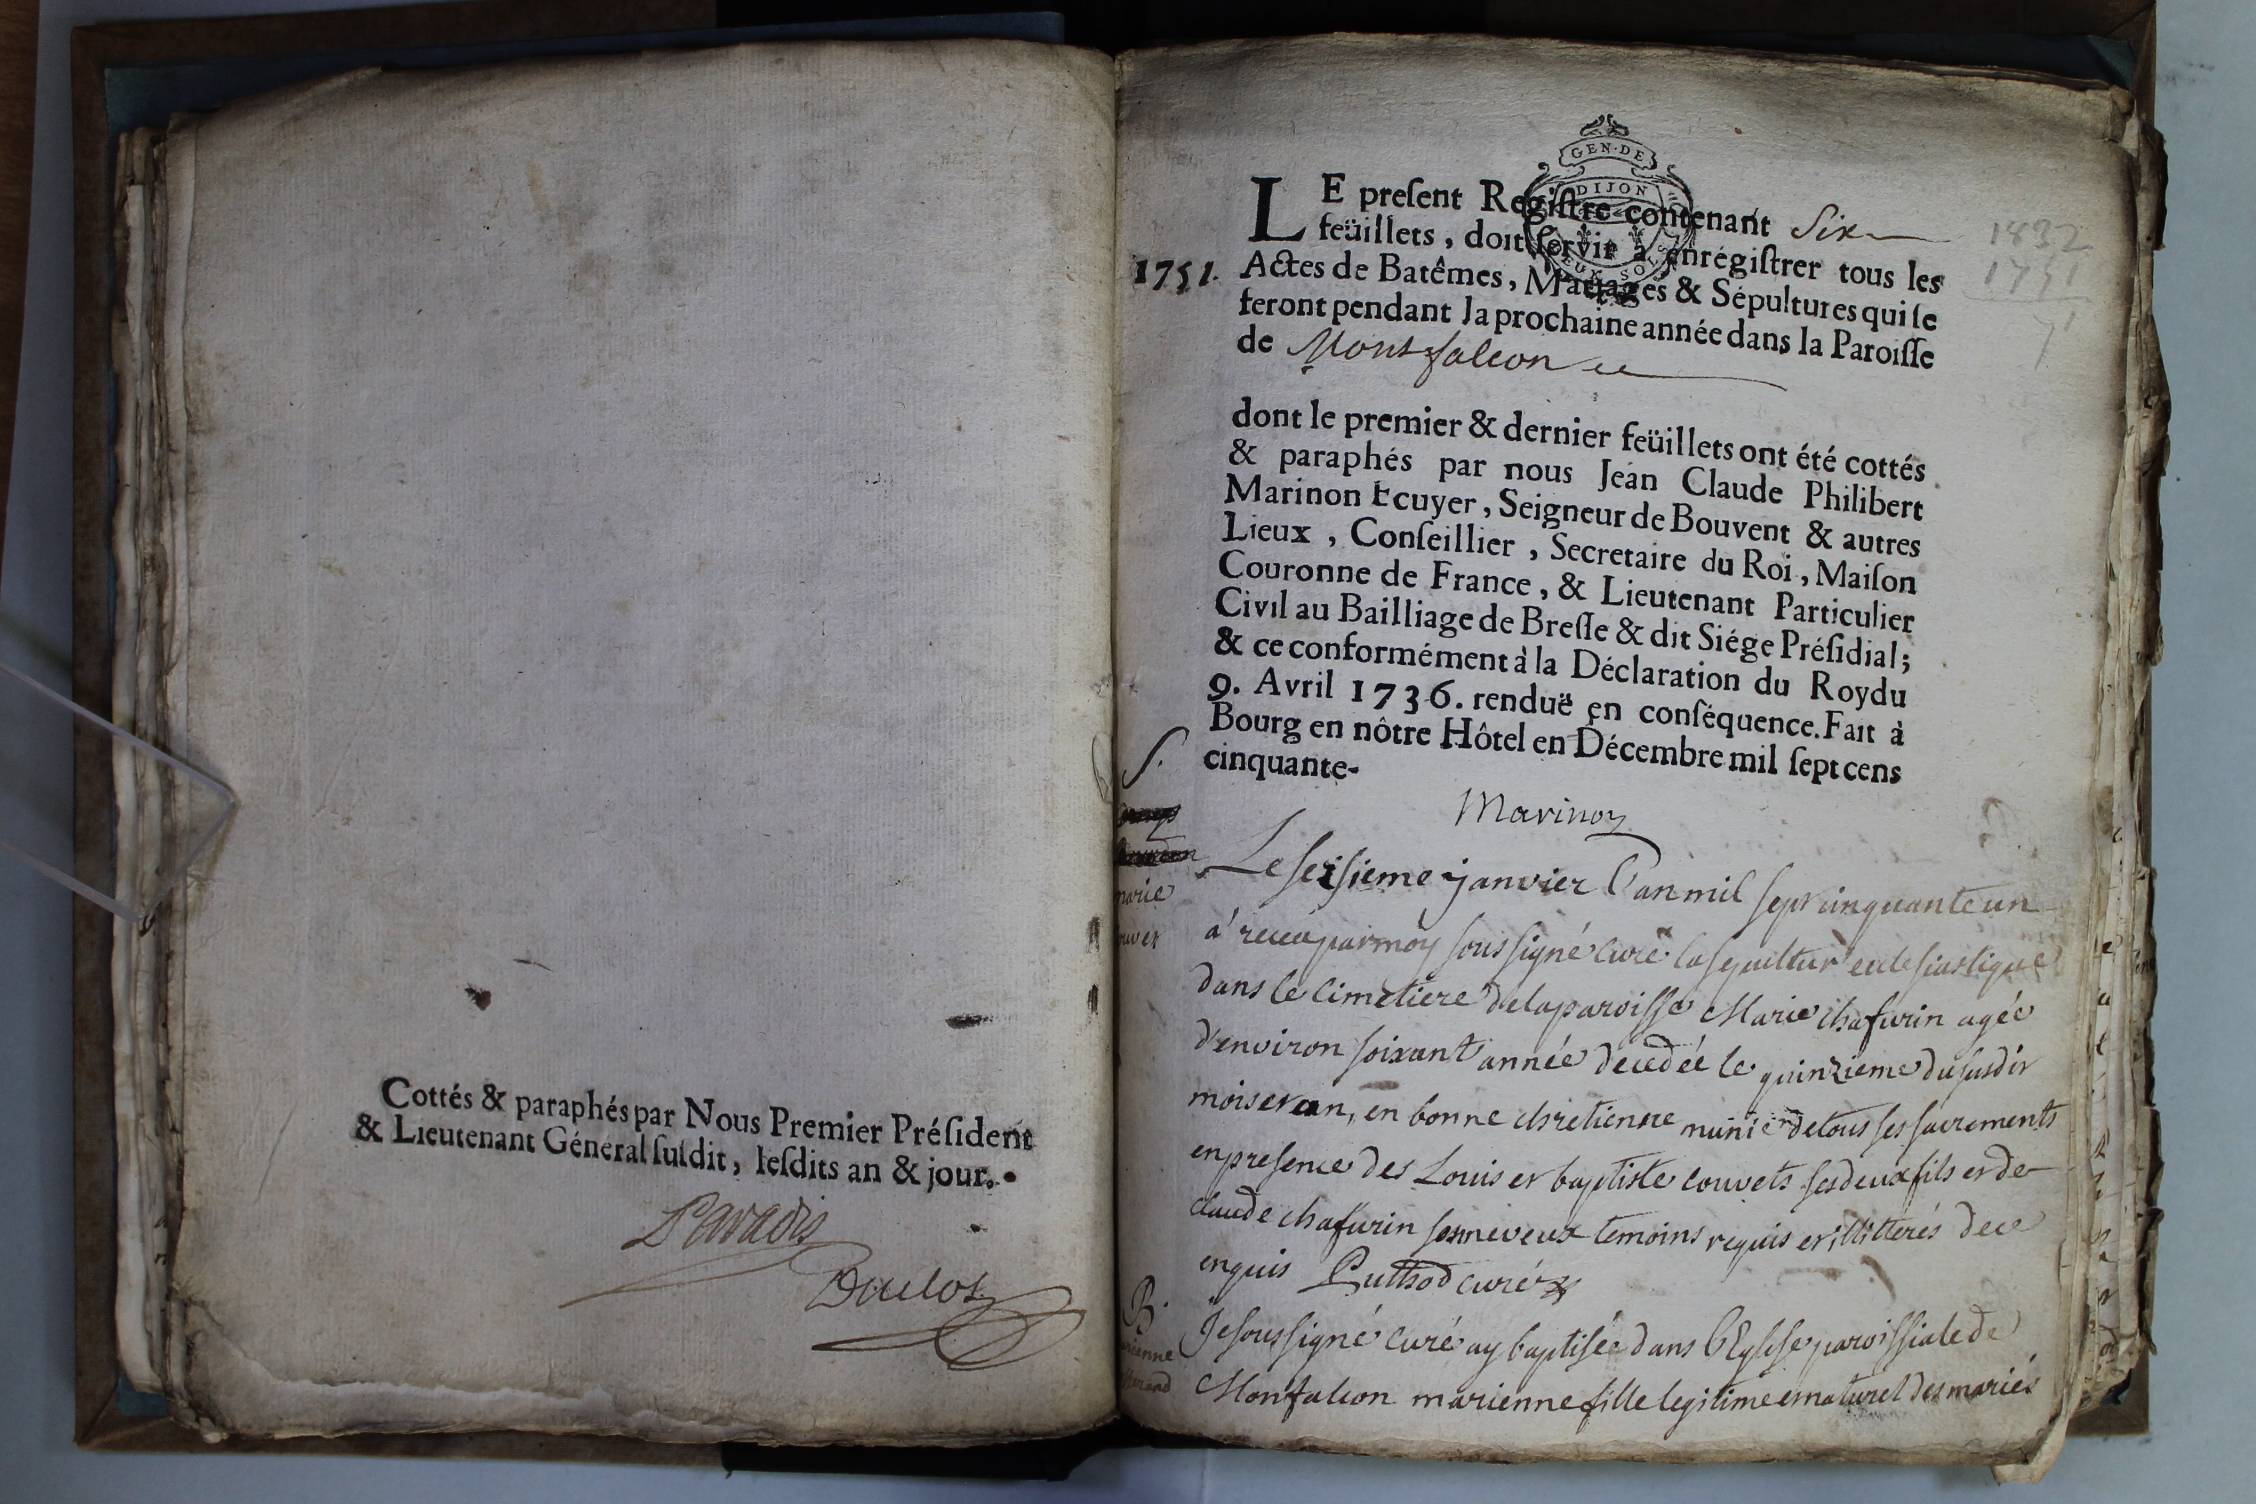 Cottés & paraphés par Nous Premier Préſident
& Lieutenant Géneral ſuſdit, leſdits an & jour.
Paradis
Duclos
GEN·DE
DIJON
DEUX SOLS
LE preſent Regiſtre contenant Six
feüillets, doit ſervir à enrégiſtrer tous les
1751. Actes de Batêmes, Mariages & Sépultures qui ſe
feront pendant la prochaine année dans la Paroiſſe
de Montfalcon
1832
1751
dont le premier & dernier feüillets ont été cottés
& paraphés par nous Jean Claude Philibert
Marinon Ecuyer, Seigneur de Bouvent & autres
Lieux, Conſeillier, Secretaire du Roi, Maiſon
Couronne de France, & Lieutenant Particulier
Civil au Bailliage de Breſſe & dit Siége Préſidial;
& ce conformément à la Déclaration du Roy du
9. Avril 1736. renduë en conſéquence. Fait à
Bourg en nôtre Hôtel en Décembre mil ſept cens
cinquante-
Marinon
S.
marie
Le seisieme janvier l'an mil sept cinquante un
a receu par moy soussigné curé la sepultur ecclesiastique
dans le cimetiere de la paroisse Marie chafurin agée
d'environ soixant année decedée le quinzieme du susdit
mois et an, en bonne chretienne munie de tous ses sacrements
en presence des Louis et baptiste couvets ses deux fils et de
claude chafurin son neveux temoins requis et illitterés de ce
enquis Puthod curé
B.
Je soussigné curé ay baptisée dans l'Eglise paroissiale de
Monfalcon marienne fille legitime et naturel des mariés